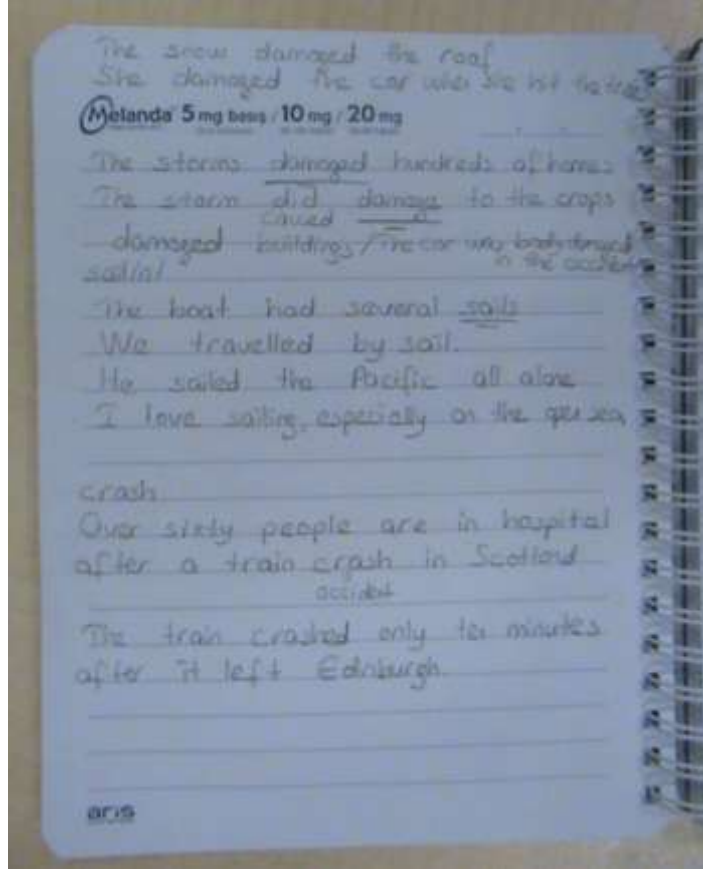 The snow damaged the roof
She damaged the car when she hit the tree
Melanda 5 mg basis / 10 mg / 20 mg
The storms damaged hundreds of homes
The storm did damage to the crops
caused
damaged buildings / The car was badly damaged
in the accident
sail(n)
The boat had several sails
We travelled by sail.
He sailed the Pacific all alone
I love sailing, especially on the open sea
crash
Over sixty people are in hospital
after a train crash in Scotland
accident
The train crashed only ten minutes
after it left Edinburgh.
aris